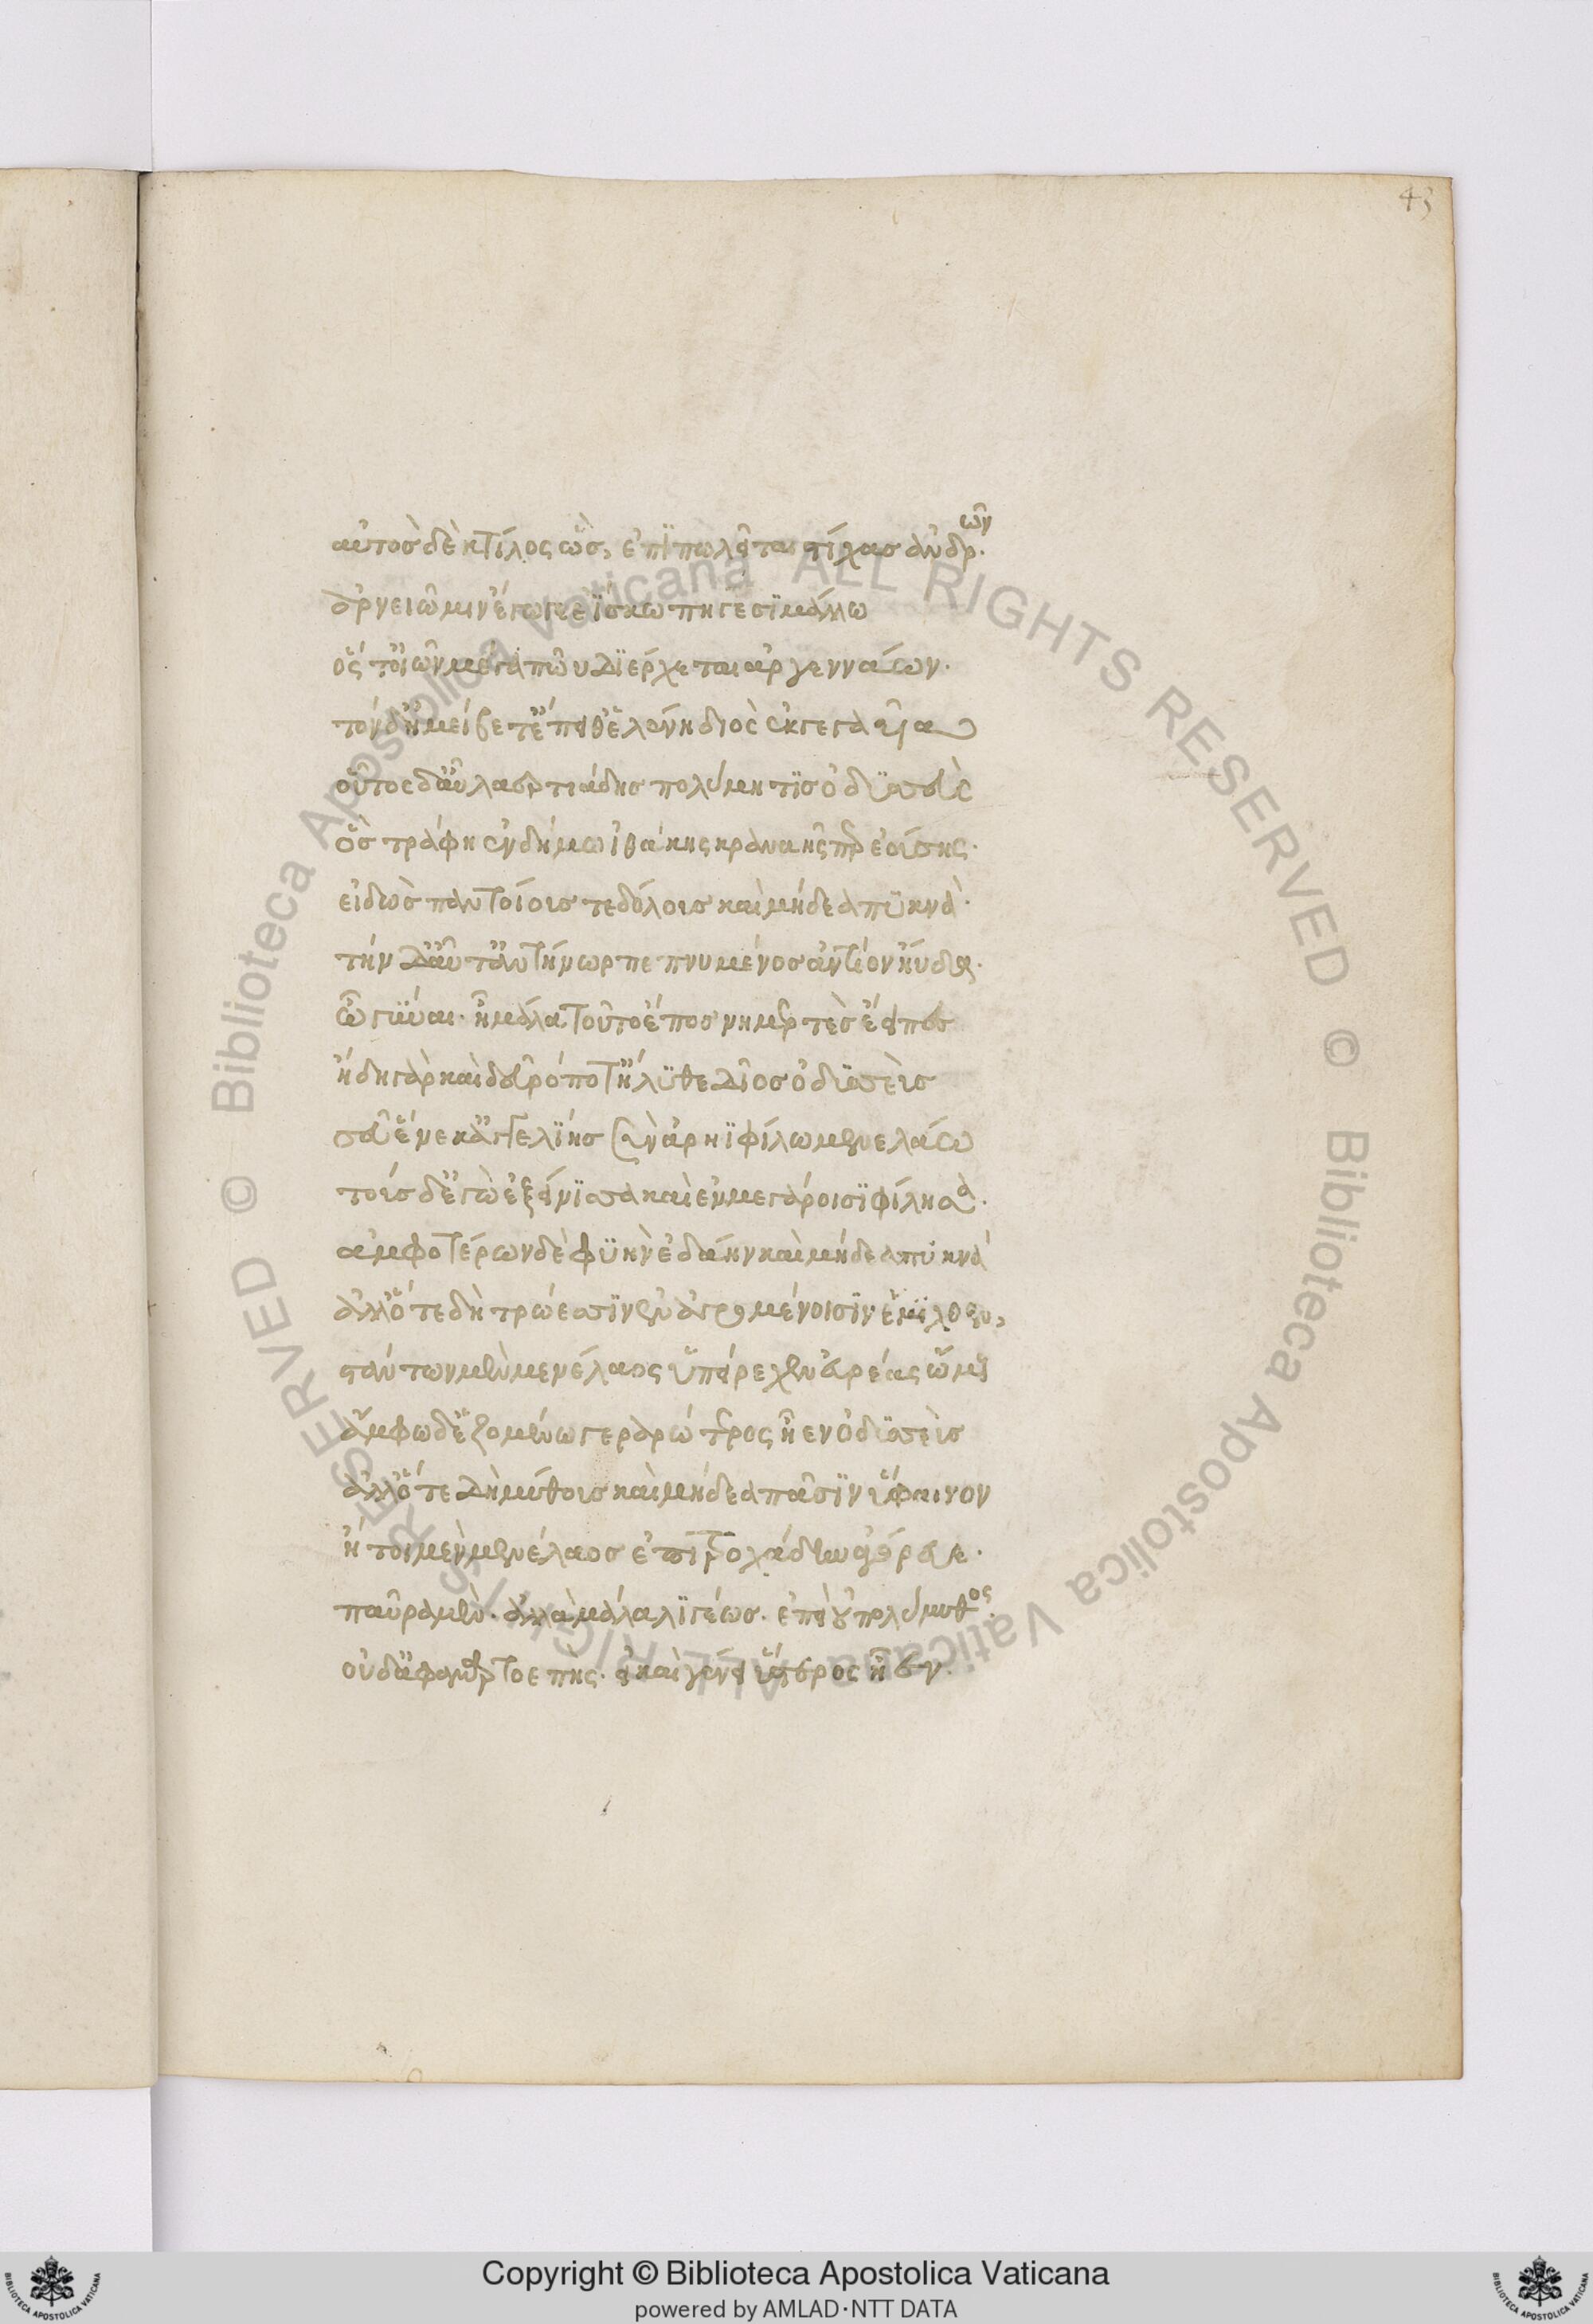 43
αὐτὸς δὲ κτίλος ὣς, ἐπϊπωλεῖται στίχας ἀνδρῶν.
ἀρνειῶ μιν ἔγωγε ἐΐσκω πηγεσϊμάλλω
ὅς τ' ὀϊῶν μέγα πῶυ διέρχεται ἀργεννάων.
τὸν δ' ἠμείβετ' ἔπειθ' ἑλένη διὸς ἐκγεγαυῖα
οὗτος δ' αὖ λαερτιάδης πολύμητϊς ὀδϋσσεὺς
ὃς τράφη ἐν δήμω ἰθάκης κραναῆς περ ἐούσης.
εἰδὼς παντοίους τε δόλους καὶ μήδεα πϋκνὰ.
τὴν δ' αὖτ' ἀντήνωρ πεπνυμένος ἀντίον ηὔδα.
ὦ γύναι. ἦ μάλα τοῦτο ἔπος νημερτὲς ἔειπες
ἤδη γὰρ καὶ δεῦρό ποτ' ἤλϋθε δῖος ὀδϋσσεὺς
σεῦ ἕνεκ' ἀγγελΐης σὺν ἀρηϊφίλω μενελάω
τοὺς δ' ἐγὼ ἐξείνϊσσα καὶ ἐν μεγάροισϊ φίλησα.
ἀμφοτέρων δὲ φϋὴν ἐδάην καὶ μήδεα πυκνά
ἀλλ' ὅτε δὴ τρώεσσϊν ἐν ἀγρομένοισϊν ἔμϊχθεν,
στάντων μὲν μενέλαος ὑπείρεχεν εὐρέας ὤμους
ἄμφω δ' ἑζομένω γεραρώτερος ἦεν ὀδϋσσεὺς
ἀλλ' ὅτε δὴ μύθους καὶ μήδεα πᾶσϊν ὕφαινον
ἤτοι μὲν μενέλαος ἐπιτροχάδην ἀγόρευε.
παῦρα μὲν. ἀλλὰ μάλα λϊγέως. ἐπεὶ οὐ πολύμυθος.
οὐδ' ἀφαμαρτοεπής. εἰ καὶ γένει ὕστερος ἦεν.
© Biblioteca Apostolica Vaticana ALL RIGHTS RESERVED © Biblioteca Apostolica Vaticana ALL RIGHTS RESERVED
BIBLIOTECA APOSTOLICA VATICANA
Copyright © Biblioteca Apostolica Vaticana
powered by AMLAD・NTT DATA
BIBLIOTECA APOSTOLICA VATICANA